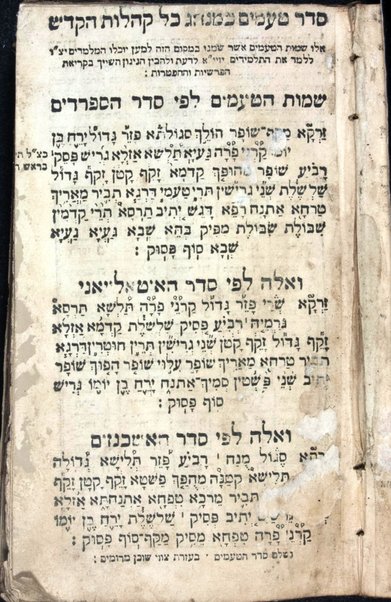 סדר טעמים במנהג כל קהלות הקדש
אלו שמות הטעמים אשר שמנו במקום הזה למען יוכלו המלמדים יצ"ו
ללמד את התלמידים יזיי"א לדעת ולהבין הניגון השייך בקריאת
הפרשיות וההפטרות :
שמות הטעמים לפי סדר הספרדים
זרקא מקף־שופר הולך סגולתא פזר גדול ירח בן
יומו קרני פרה געיא תלשא אזלא גריש פסיק
רביע שופר מהופך קדמא זקף קטן זקף גדול
שלשלת שני גרישין תרי טעמי דרגא תביר מאריך
טרחא אתנח רפא דגש יתיב תרסא תרי קדמין
שבולת שבולת מפיק בהא שבא געיא געיא
שבא סוף פסוק :
ואלה לפי סדר האיטאלייאני
זרקא שרי פזר גדול קרני פרה תלשא תרסא
גרמיה רביע פסיק שלשלת קדמא אזלא
זקף גדול זקף קטן שני גרישין תרין חוטרין דרגא
תביר טרחא מאריך שופר עלוי שופר הפוך שופר
יתיב שני פשטין סמיך אתנח ירח בן יומו גריש
סוף פסוק :
ואלה לפי סדר האשכנזים
סגול מנח רביע פזר תלישא גדולה
תלישא קטנה מהפך פשטא זקף קטן זקף
תביר מרכא טפחא אתנחתא אזלא
יתיב פסיק שלשלת ירח בן יומו
קרני פרה טפחא מסיק מקף סוף פסוק :
נשלם סדר הטעמים בעזרת צורי שוכן מרומים :